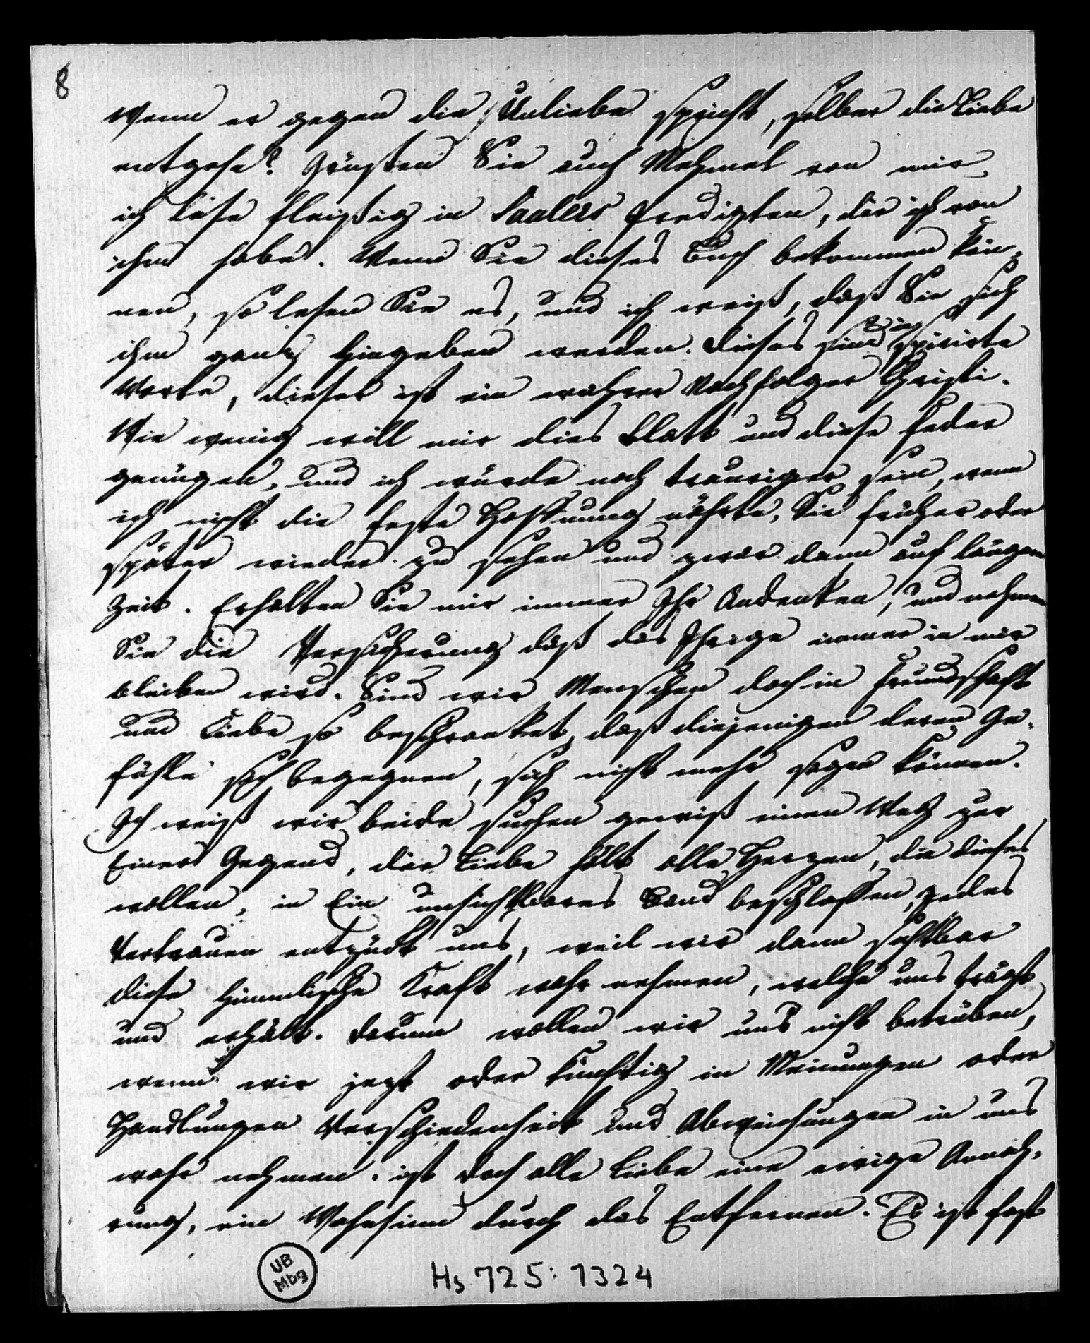 8
wenn er gegen die Unliebe spricht, selber die Liebe
entgehe? Grüsten Sie auch Mehmel von mir,
ich lese fleißig in Taulers Predigten, die ich von
ihm habe. Wenn Sie dieses Buch bekommen kön-
nen, so lesen Sie es, und ich weiß, daß Sie sich
ihm ganz hingeben werden. Dieses sind inspirirte
Worte, dieses ist ein wahrer Nachfolger Christi.
Wie wenig will mir dies Blatt und diese Feder
genügen, und ich würde noch trauriger sein, wenn
ich nicht die feste Hoffnung nährte, Sie früher oder
später wieder zu sehen und zwar dann auf längere
Zeit. Erhalten Sie mir immer Ihr Andenken, und nehmen
Sie die Versicherung daß das Ihrige immer in mir
bleiben wird. Sind wir Menschen doch in Freundschaft
und Liebe so beschränket, daß diejenigen deren Ge-
fühle sich begegnen, sich nicht mehr sagen können.
Ich weiß wir beide suchen gewiß einen Weg zur
Einer Gegend, die Liebe hält alle Herzen, die dieses
wollen, in Ein unsichtbares Band beschlossen, jedes
Vertrauen entzückt uns, weil wir dann sichtbar
diese himmlische Kraft wahr nehmen, welche uns trägt
und erhält. Darum wollen wir uns nicht betrüben,
wenn wir jezt oder künftig in Meinungen oder
Handlungen Verschiedenheit und Abweichungen in uns
wahr nehmen. ist doch alle Liebe eine ewige Annäh-
rung, ein Wahnsinn durch das Entfernen. Es ist fast
UB
Mbg
Hs 725: 1324